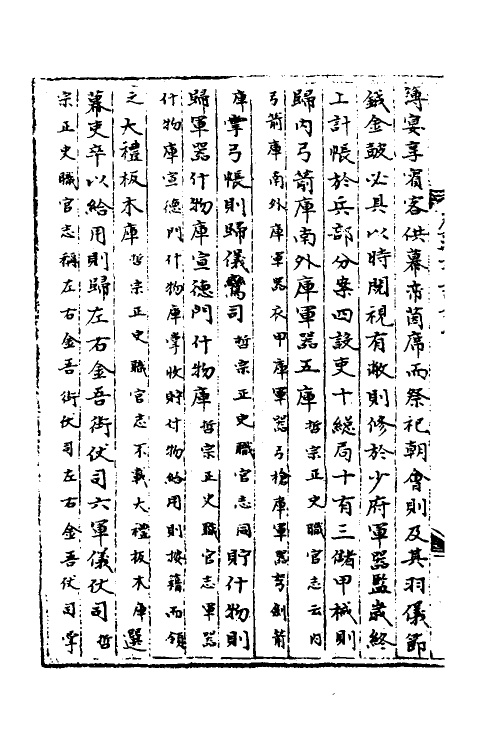 薄宴享賓客供幕帟茵席而祭祀朝會則及其羽儀節
鉞金鼓必具以時閱視有敝則修於少府軍器監歲終
上計帳於兵部分案四設吏十總局十有三儲甲械則
歸內弓箭庫南外庫軍器五庫哲宗正史職官志云內
弓箭庫南外庫軍器衣甲庫軍器弓槍庫軍器弩劍箭
庫掌弓帳則歸儀鸞司哲宗正史職官志同貯什物則
歸軍器什物庫宣德門什物庫哲宗正史職官志軍器
什物庫宣德門什物庫掌收貯什物給用則按籍而頒
之大禮板木庫哲宗正史職官志不載大禮板木庫選
募吏卒以給用則歸左右金吾街仗司六軍儀仗司哲
宗正史職官志稱左右金吾街仗司左右金吾仗司掌